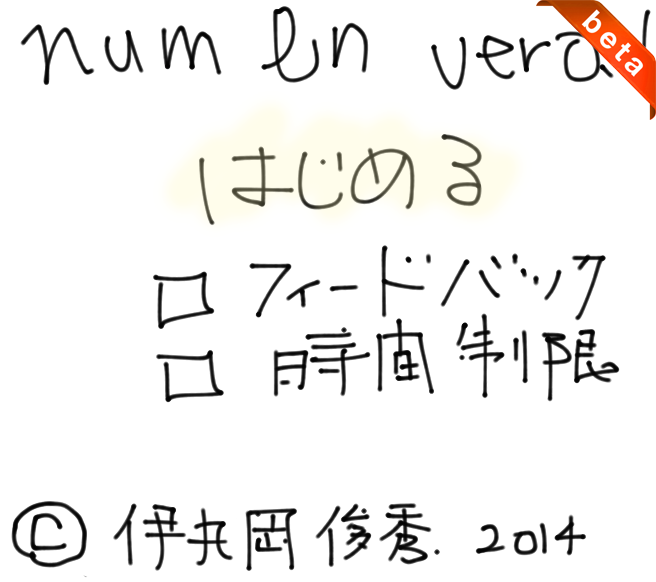 num ln verd
beta
はじめる
フィードバック
時間制限
© 伊共岡俊秀. 2014